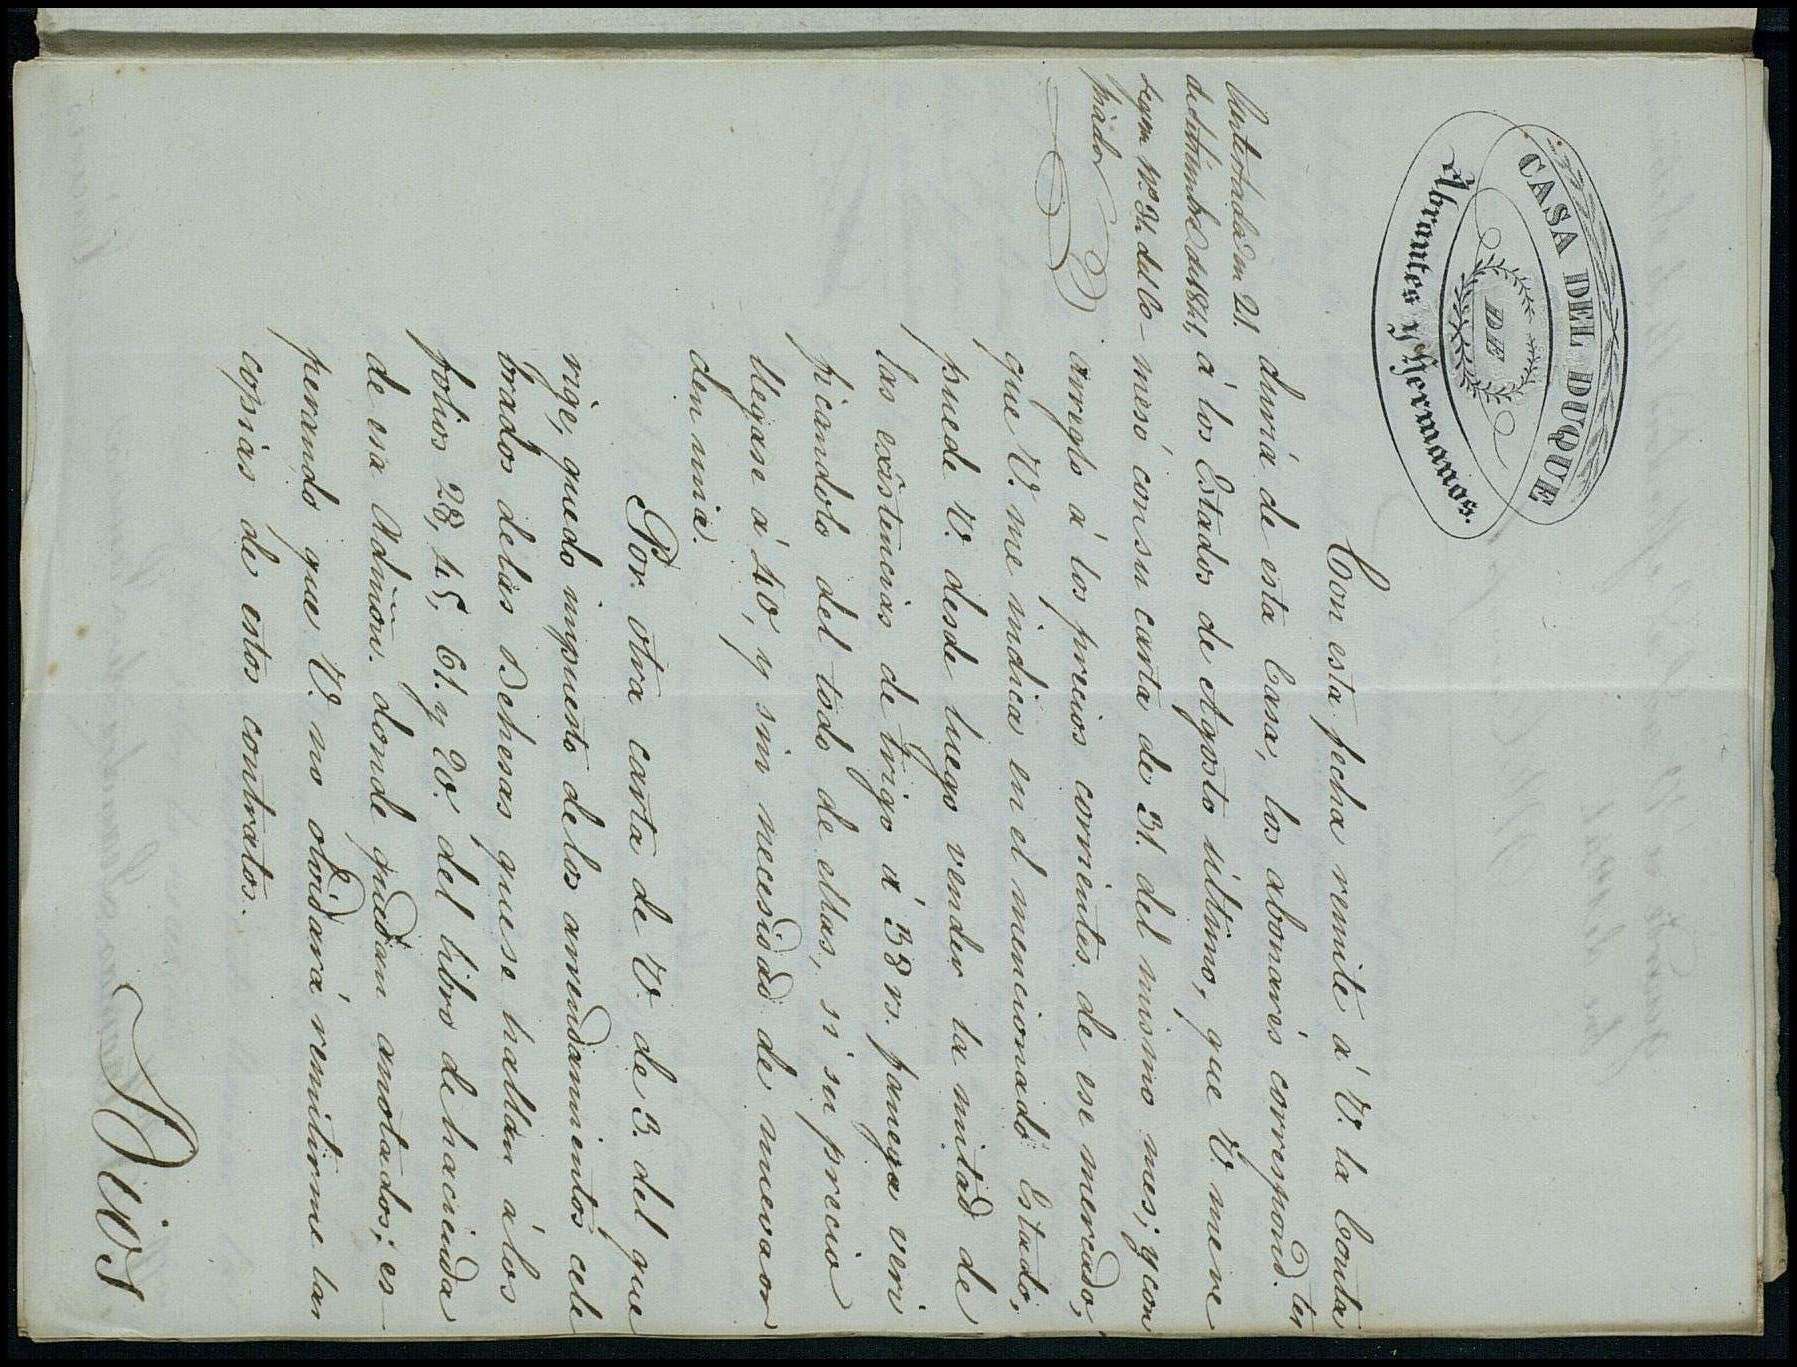 CASA DEL DUQUE
DE
Abrantes y Hermanos.
Contextada en 21.
de setiembre de 1841,
segun Nº 31. del Co-
piador
Con esta fecha remite á V. la Conta
duria de esta Casa, los abonarés correspond.tes
á los Estados de Agosto último, que V. me re
mesó con su carta de 31. del mismo mes; y con
arreglo á los precios corrientes de ese mercado,
que V. me indica en el mencionado Estado,
puede V. desde luego vender la mitad de
las existencias de trigo á 38 rs. fanega veri
ficandolo del todo de ellas, si su precio
llegase á 40, y sin necesidad de nueva or
den mia.
Por otra carta de V. de 3. del que
rige, quedo impuesto de los arrendamientos cele
brados de las Dehesas que se hallan á los
folios 28, 45, 61. y 20. del libro de hacienda
de esa Admon. donde quedan anotados; es-
perando que V. no olvidará remitirme las
copias de estos contratos.
Dios